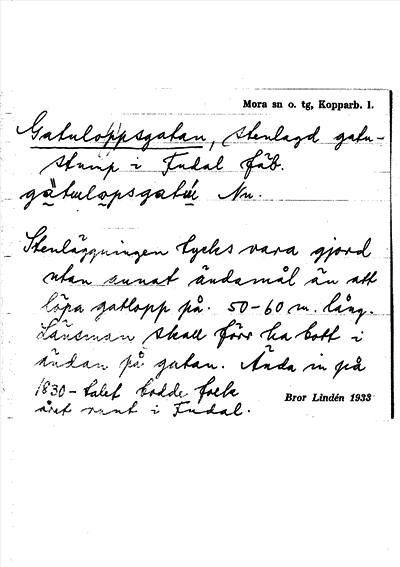 Mora sn o. tg, Kopparb. l.
Gatuloppsgatan, stenlagd gatu-
stump i Indal fäb.
Nu.
Stenläggningen tycks vara gjord
utan annat ändamål än att
löpa gatlopp på. 50-60 m. lång.
Länsman skall förr ha bott i
ändan på gatan. Ända in på
1830-talet bodde folk
året runt i Indal.
Bror Lindén 1933